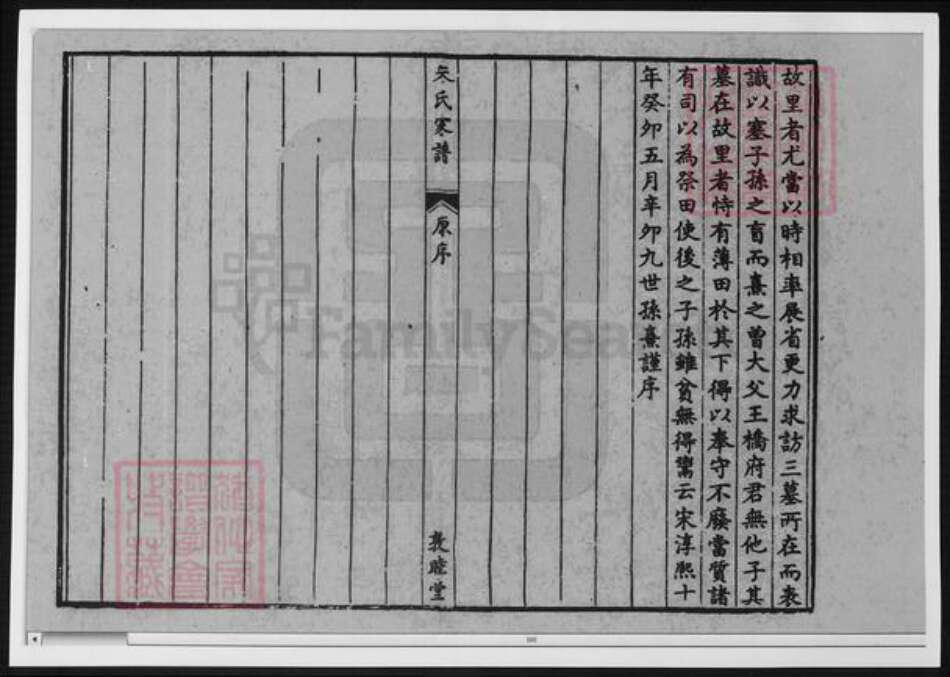 故里者尤當以時相率展省更力求訪三墓所在而表
識以塞子孫之責而熹之曾大父王橋府君無他子其
墓在故里者恃有薄田於其下得以奉守不廢當質諸
有司以為祭田使後之子孫雖貧無得鬻云宋淳熙十
年癸卯五月辛卯九世孫熹謹序
朱氏家譜
原序
敦睦堂
FamilySearch